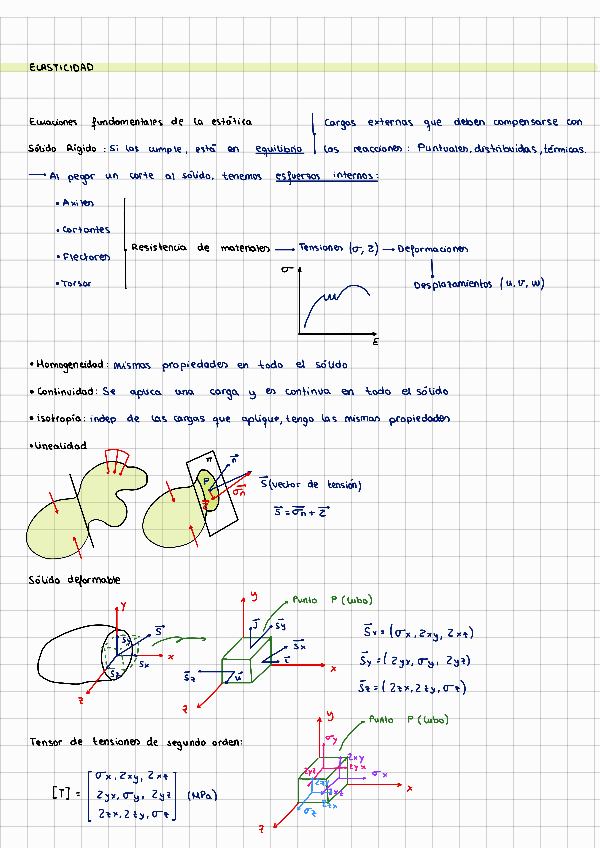 ELASTICIDAD
Ecuaciones fundamentales de la estática
Cargas externas que deben compensarse con
Sólido Rígido: Si las cumple, está en equilibrio
las reacciones: Puntuales, distribuidas, térmicas.
→ Al pegar un corte al sólido, tenemos esfuerzos internos:
• Axiles
• Cortantes
• Flectores
• Torsor
Resistencia de materiales → Tensiones (σ, τ) → Deformaciones
Desplazamientos (u, v, w)
σ
E
• Homogeneidad: mismas propiedades en todo el sólido
• Continuidad: Se aplica una carga y es continua en todo el sólido
• isotropía: indep de las cargas que aplique, tengo las mismas propiedades
• Linealidad
π
n⃗
P
σ⃗n
τ⃗
S⃗ (vector de tensión)
S⃗ = σ⃗n + τ⃗
Sólido deformable
y
S⃗
Sy
Sx
Sz
x
z
y
Punto P (cubo)
j⃗
S⃗y
S⃗x
i⃗
S⃗z
u⃗
x
z
S⃗x = (σx, τxy, τxz)
S⃗y = (τyx, σy, τyz)
S⃗z = (τzx, τzy, σz)
Tensor de tensiones de segundo orden:
[T] = [σx, τxy, τxz
τyx, σy, τyz
τzx, τzy, σz] (MPa)
y
Punto P (cubo)
σy
τxy
τyz
τyx
σx
τzy
τxz
σz
x
z